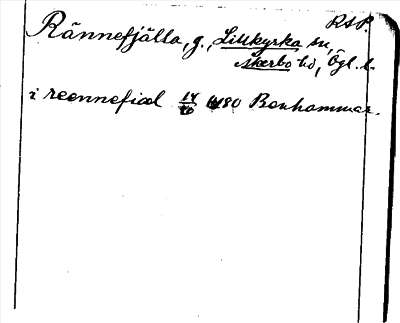 RAP.
Rännefjälla, g., Lillkyrka sn,
Åkerbo hd, Ögl. l.
i reennefiæl 14/10 1480 Bonhammar.